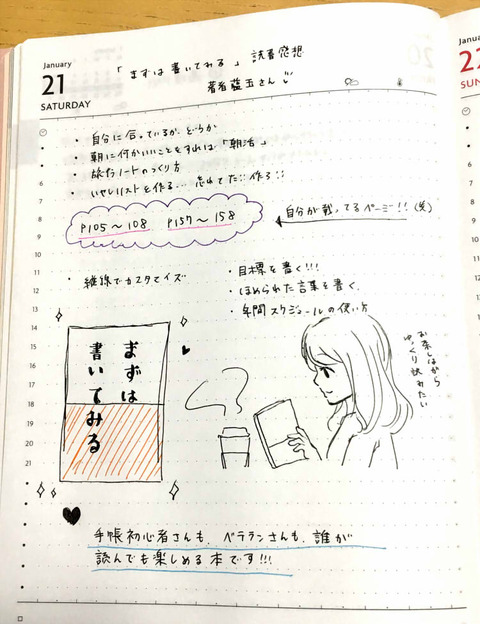 January
21
SATURDAY
「まずは書いてみる」読書感想
著者 藍玉さん
・自分に合っているか、どうか
・朝に何かいいことをすれば「朝活」
・旅行ノートのつくり方
・いやしリストを作る… 忘れてた!! 作ろ!!
P105〜108 P157〜158
自分が載ってるページ!! (笑)
・罫線でカスタマイズ
・目標を書く!!!
・ほめられた言葉を書く
・年間スケジュールの使い方
まずは
書いてみる
お茶しながら
ゆっくり読みたい
手帳初心者さんも、ベテランさんも、誰が
読んでも楽しめる本です!!!
6
7
8
9
10
11
12
13
14
15
16
17
18
19
20
21
Janua
22
SUN